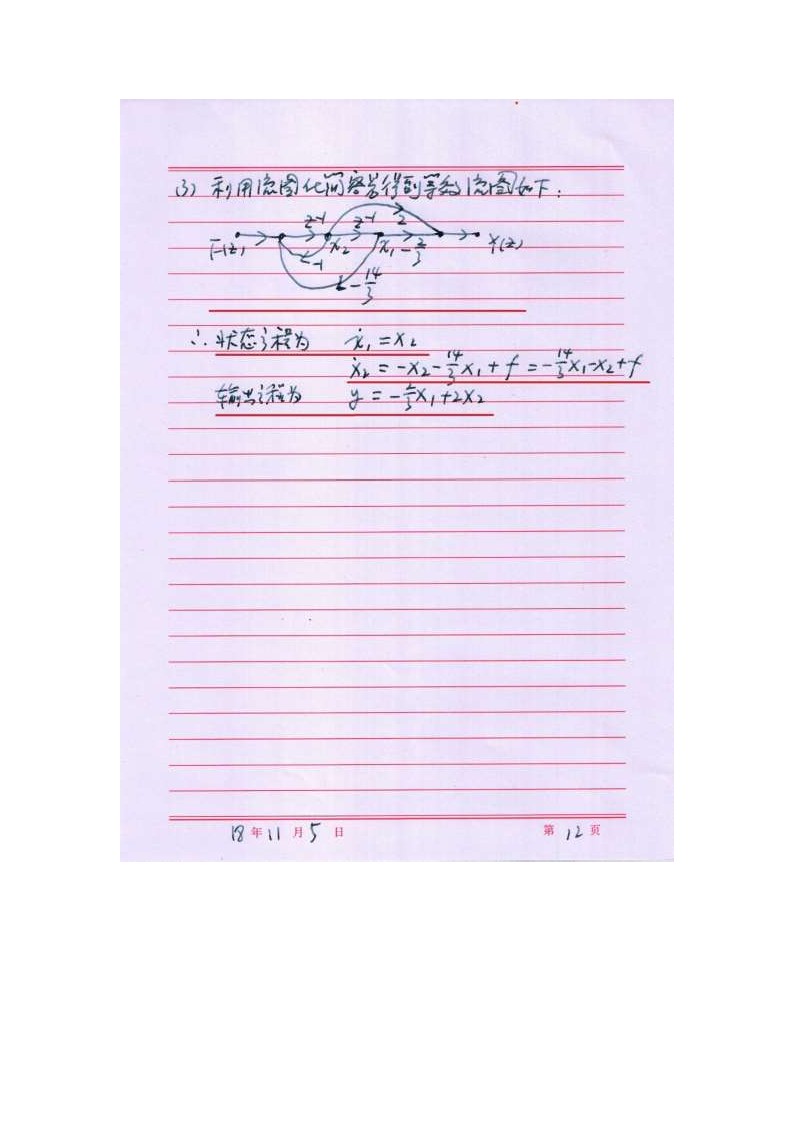 (3) 利用流图化简容易得到等效流图如下：
z⁻¹ z⁻¹ 2
F(z) x₂ x₁ -2/3 Y(z)
-1
-14/3
∴ 状态方程为 ẋ₁ = x₂
ẋ₂ = -x₂ - 14/3 x₁ + f = -14/3 x₁ - x₂ + f
输出方程为 y = -2/3 x₁ + 2x₂
18 年 11 月 5 日 第 12 页